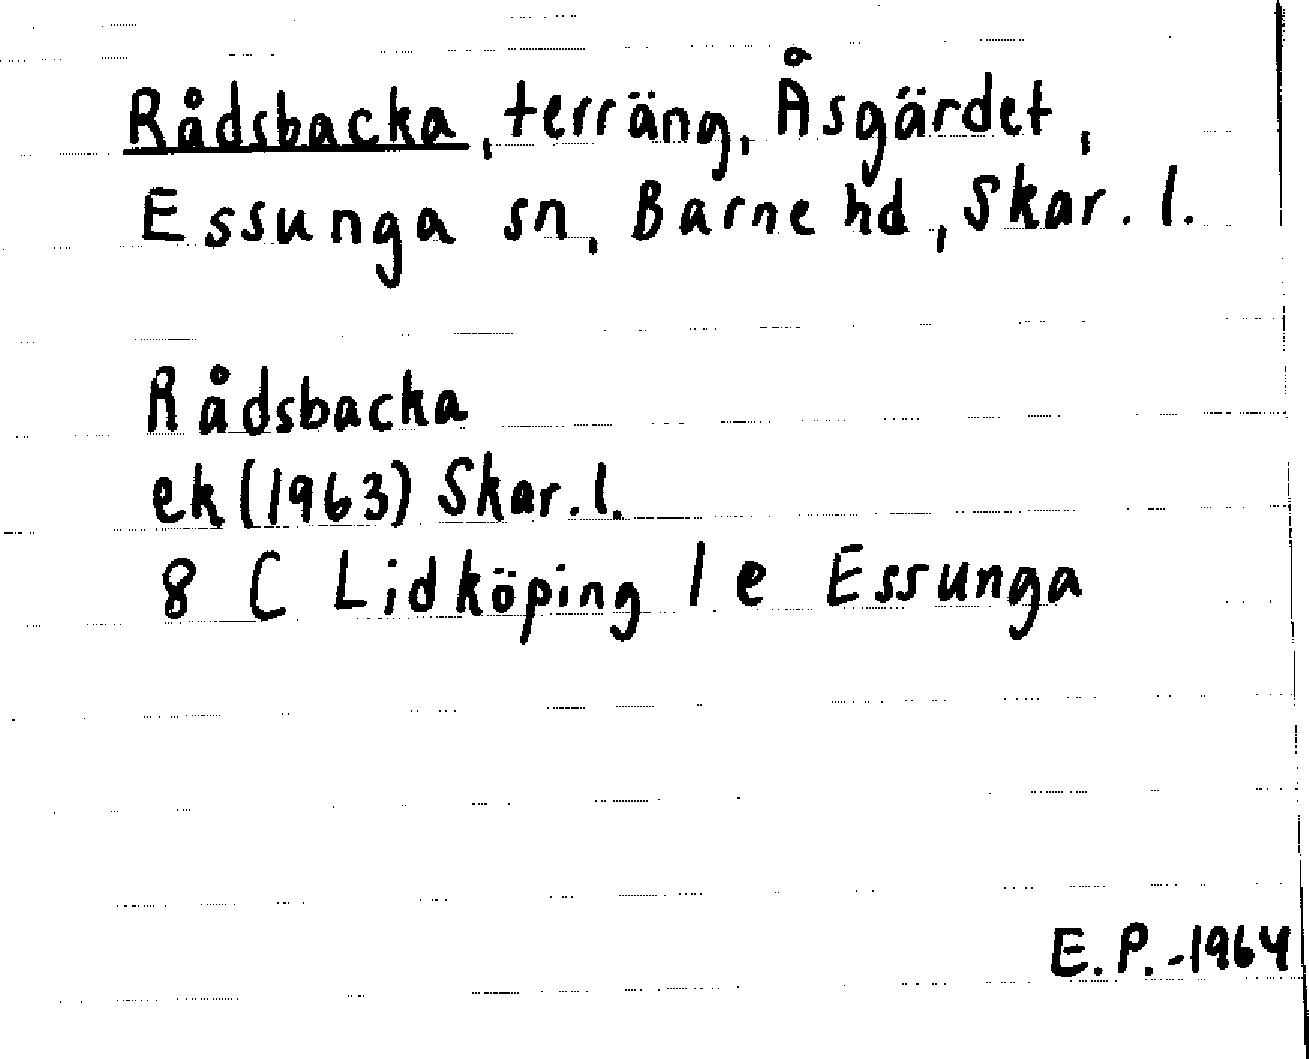 Rådsbacka, terräng, Åsgärdet,
Essunga sn, Barne hd, Skar. l.
Rådsbacka
ek (1963) Skar. l.
8 C Lidköping 1 e Essunga
E. P. -1964